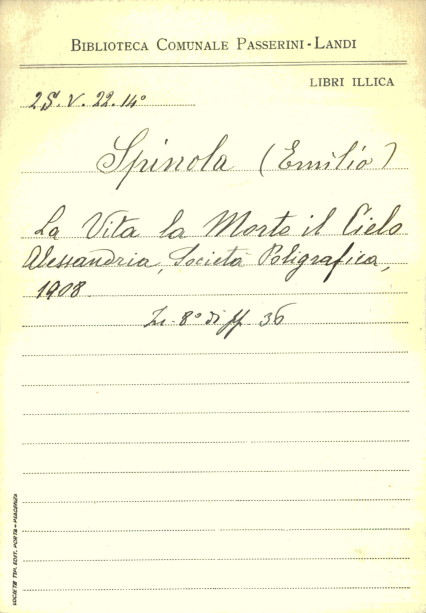 BIBLIOTECA COMUNALE PASSERINI-LANDI
LIBRI ILLICA
2S. V. 22. 14°
Spinola (Emilio)
La Vita la Morte il Cielo
Alessandria, Società Poligrafica,
1908
In-8° di pp. 36
SOCIETÀ TIP. EDIT. PORTA - PIACENZA